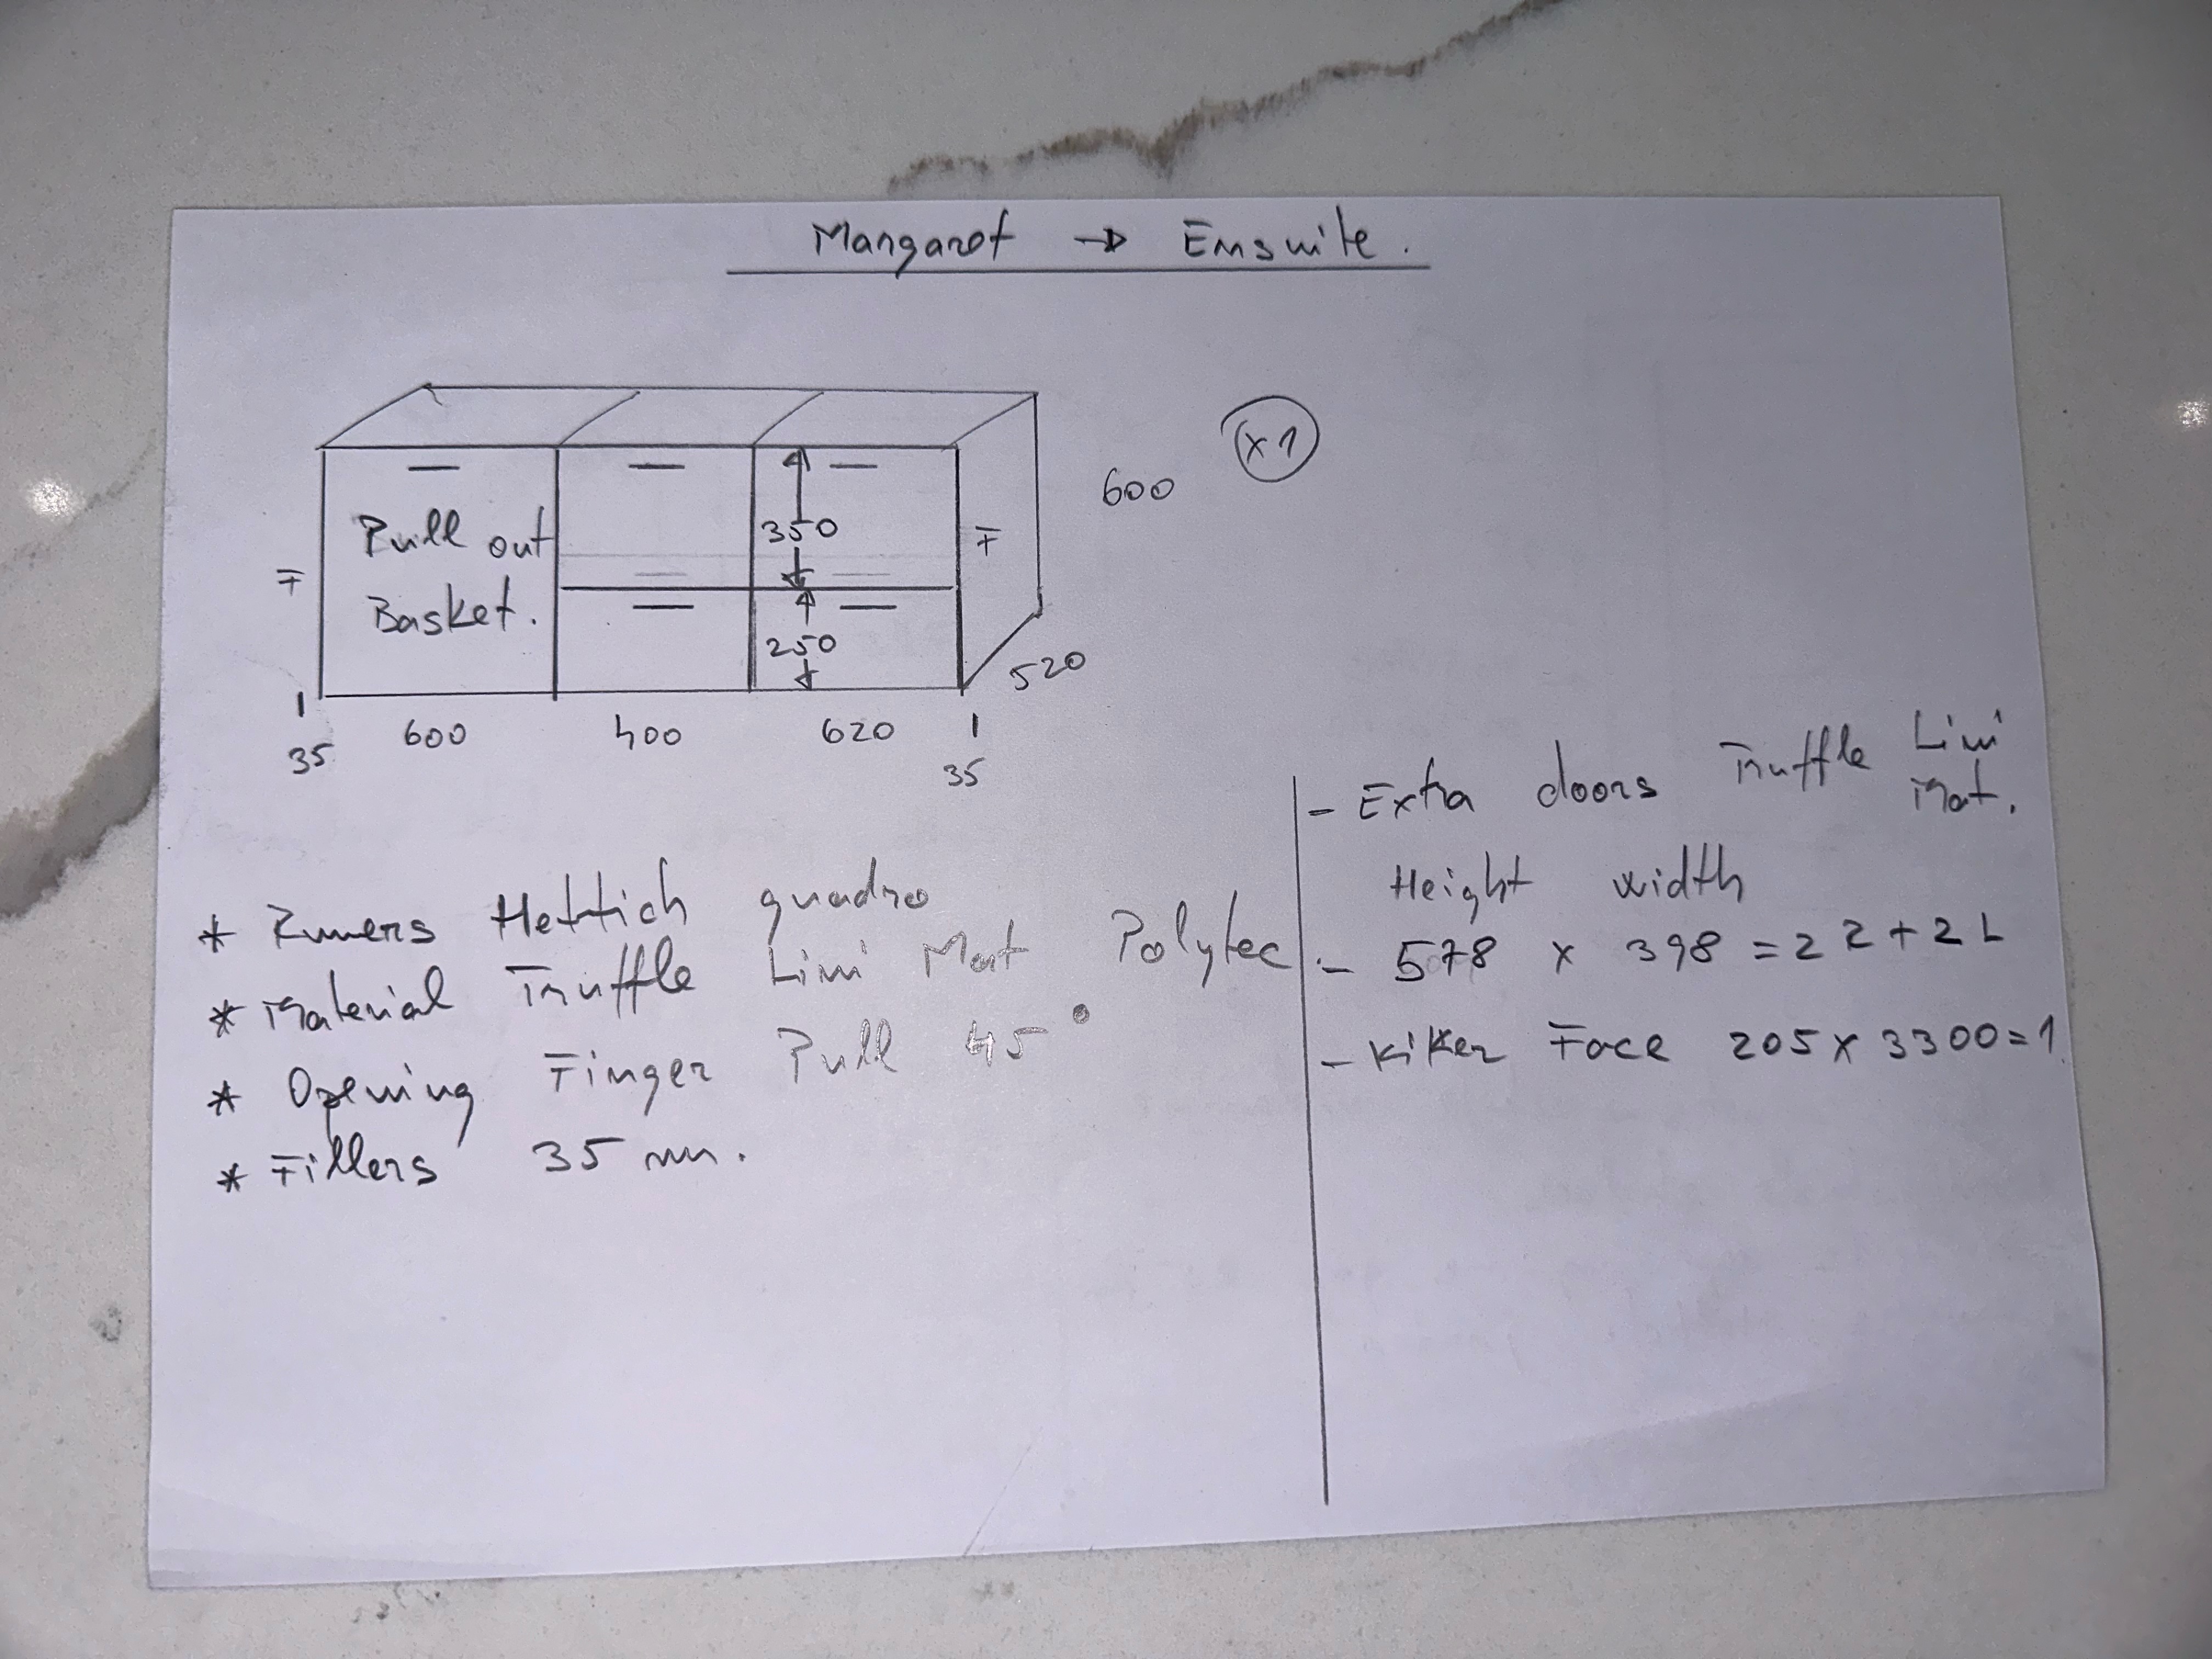 Margaret → Ensuite.
x1
600
F
Pull out
Basket.
350
F
250
520
35
600
400
620
35
* Runers Hettich quadro
* Material Truffle Lini Mat Polytec
* Opening Finger Pull 45°
* Fillers 35 mm.
- Extra doors Truffle Lini
Mat.
Height width
- 578 x 398 = 2R + 2L
- Kiker Face 205 x 3300 = 1